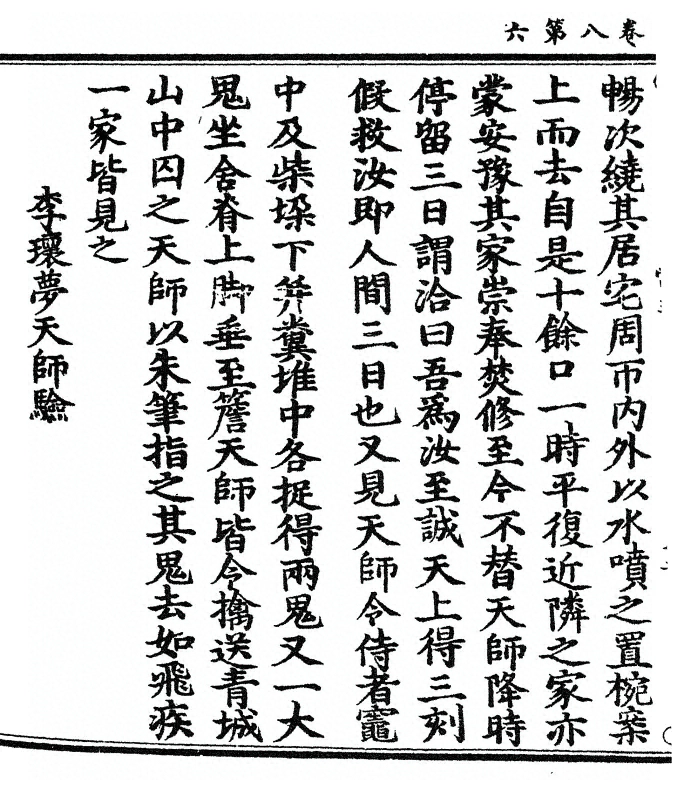 卷八第六
暢次繞其居宅周帀内外以水噴之置椀案
上而去自是十餘口一時平復近隣之家亦
蒙安豫其家崇奉焚修至今不替天師降時
停留三日謂洽曰吾爲汝至誠天上得三刻
假救汝即人間三日也又見天師令侍者竈
中及柴垜下并糞堆中各捉得兩鬼又一大
鬼坐舍脊上脚垂至簷天師皆令擒送青城
山中囚之天師以朱筆指之其鬼去如飛疾
一家皆見之
李瓌夢天師驗